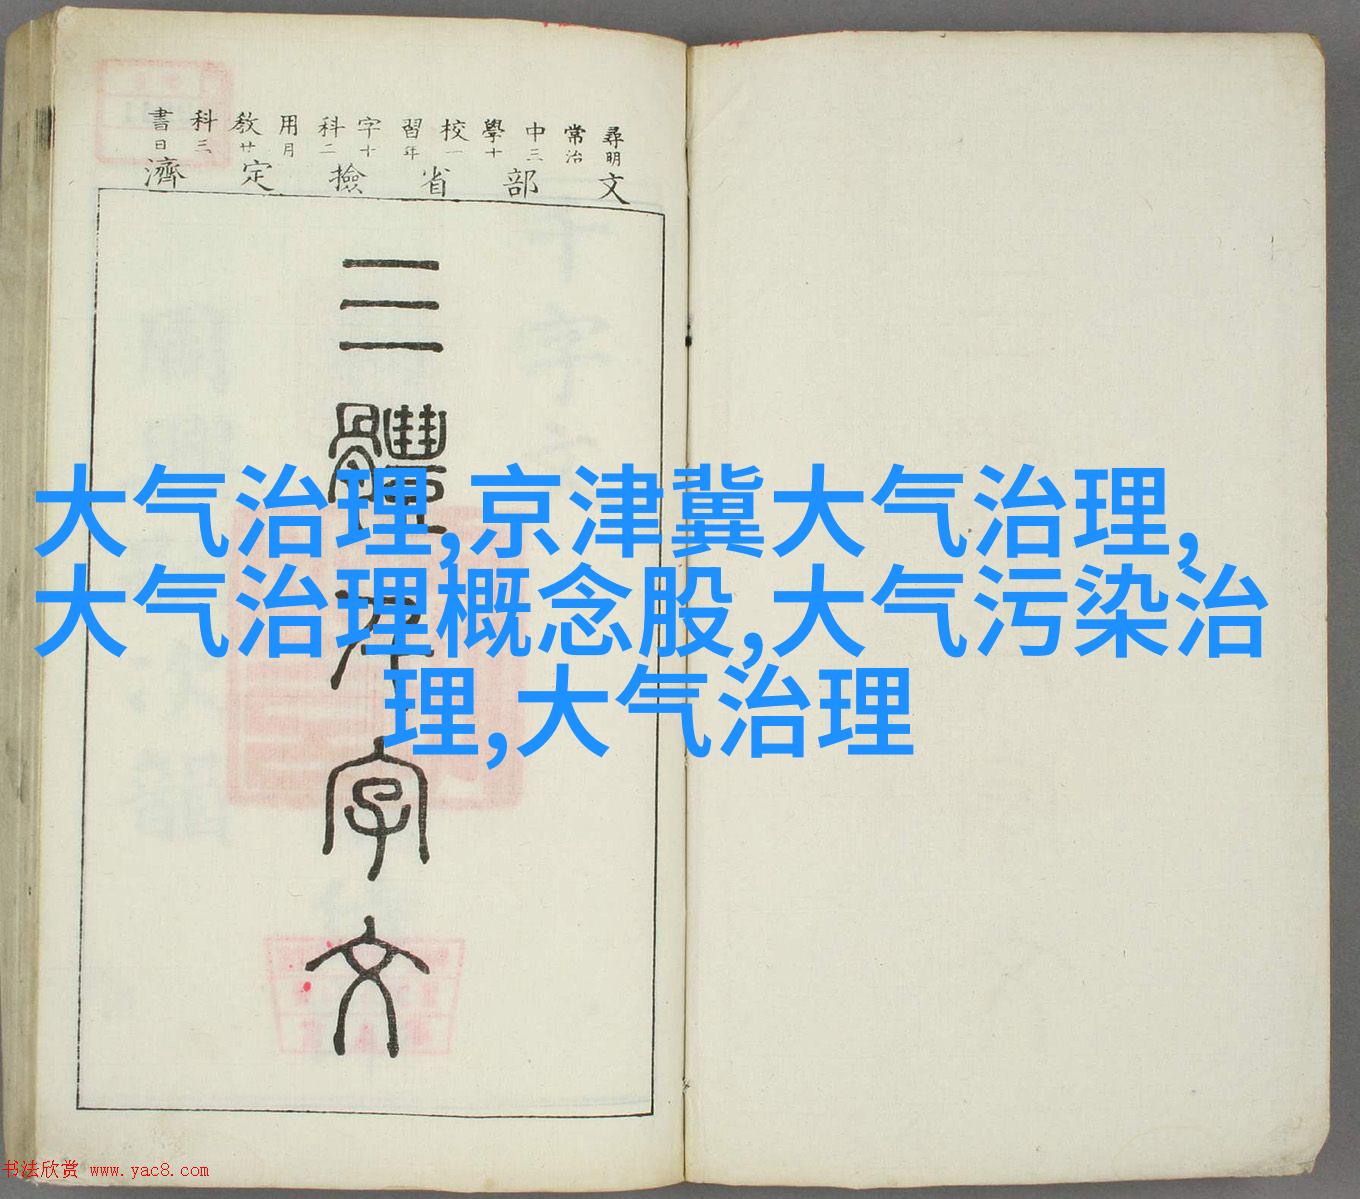 尋常中學校習字科用教科書
明治三十一年十二月廿三日
文部省撿定濟
三體千字文
大气治理,京津冀大气治理,
大气治理概念股,大气污染治
理,大气治理
书法欣赏 www.yac8.com